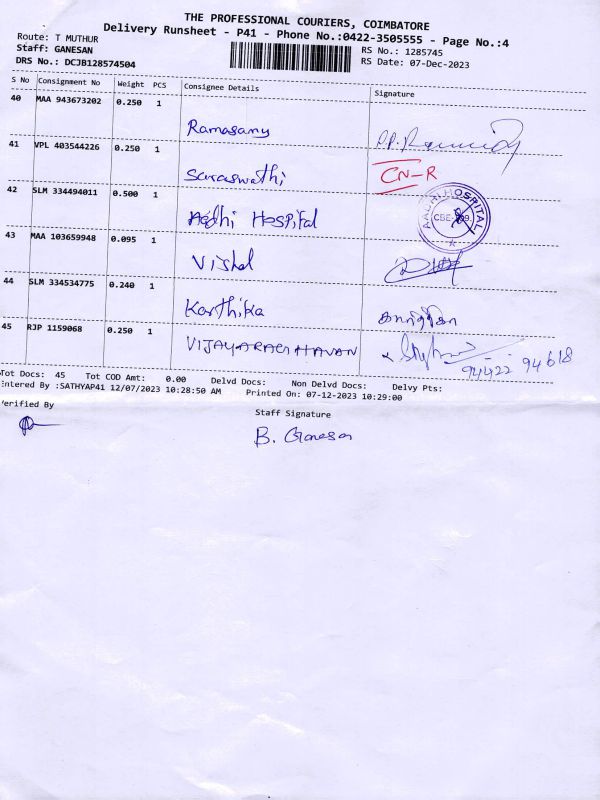 THE PROFESSIONAL COURIERS, COIMBATORE
Delivery Runsheet - P41 - Phone No.:0422-3505555 - Page No.:4
Route: T MUTHUR
Staff: GANESAN
RS No.: 1285745
DRS No.: DCJB128574504
RS Date: 07-Dec-2023
S No Consignment No Weight PCS Consignee Details Signature
40 MAA 943673202 0.250 1
Ramasamy
41 VPL 403544226 0.250 1
Saraswathi CN-R
42 SLM 334494011 0.500 1
Aadhi Hospital AADHI HOSPITAL
43 MAA 103659948 0.095 1
Vishal
44 SLM 334534775 0.240 1
Karthika கார்த்திகா
45 RJP 1159068 0.250 1
VIJAYARAGHAVAN 94422 94618
Tot Docs: 45 Tot COD Amt: 0.00 Delvd Docs: Non Delvd Docs: Delvy Pts:
Entered By :SATHYAP41 12/07/2023 10:28:50 AM Printed On: 07-12-2023 10:29:00
Verified By Staff Signature
B. Ganesan